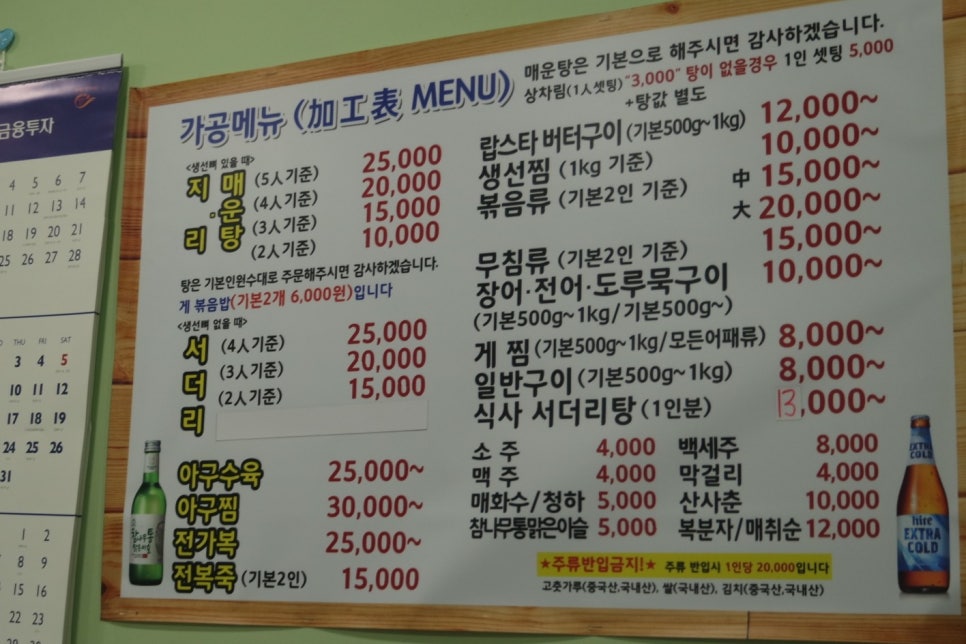 금융투자
4 5 6 7
11 12 13 14
18 19 20 21
25 26 27 28
THU FRI SAT
3 4 5
10 11 12
17 18 19
24 25 26
31
1 2
8 9
15 16
22 23
가공메뉴 (加工表 MENU)
매운탕은 기본으로 해주시면 감사하겠습니다.
상차림(1人셋팅) "3,000" 탕이 없을경우 1인 셋팅 5,000
+탕값 별도
<생선뼈 있을 때>
지·리 매운탕
(5人기준) 25,000
(4人기준) 20,000
(3人기준) 15,000
(2人기준) 10,000
탕은 기본인원수대로 주문해주시면 감사하겠습니다.
게 볶음밥(기본2개 6,000원)입니다
<생선뼈 없을 때>
서더리
(4人기준) 25,000
(3人기준) 20,000
(2人기준) 15,000
아구수육 25,000~
아구찜 30,000~
전가복 25,000~
전복죽 (기본2인) 15,000
랍스타 버터구이 (기본500g~1kg) 12,000~
생선찜 (1kg 기준) 10,000~
볶음류 (기본2인 기준) 中 15,000~
大 20,000~
무침류 (기본2인 기준) 15,000~
장어·전어·도루묵구이 10,000~
(기본500g~1kg/기본500g~)
게 찜 (기본500g~1kg/모든어패류) 8,000~
일반구이 (기본500g~1kg) 8,000~
식사 서더리탕 (1인분) 13,000~
소 주 4,000 백세주 8,000
맥 주 4,000 막걸리 4,000
매화수/청하 5,000 산사춘 10,000
참나무통맑은이슬 5,000 복분자/매취순 12,000
★주류반입금지!★ 주류 반입시 1인당 20,000입니다
고춧가루(중국산,국내산), 쌀(국내산), 김치(중국산,국내산)
EXTRA COLD
hite
EXTRA
COLD